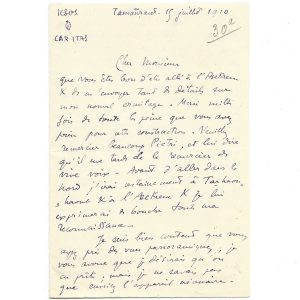 IESUS
CARITAS
Tamanrasset. 15 juillet 1910
30e
Cher Monsieur
que vous êtes bon d'être allé à l'Asekrem
X de m'envoyer tant de détails sur
mon nouvel ermitage. Mais mille
fois de toute la peine que vous avez
prise pour cette construction. Veuillez
remercier beaucoup Pietri, et lui dire
qu'il me tarde de le remercier de
vive voix. - Avant d'aller dans le
Nord j'irai certainement à
X à l'Asekrem X je lui
exprimerai de bouche toute ma
reconnaissance.
Je suis bien content que vous
ayez pris des vues panoramiques; je
vous avoue que je désirais qu'on
en prît; mais je ne savais pas
que l'appareil nécessaire.